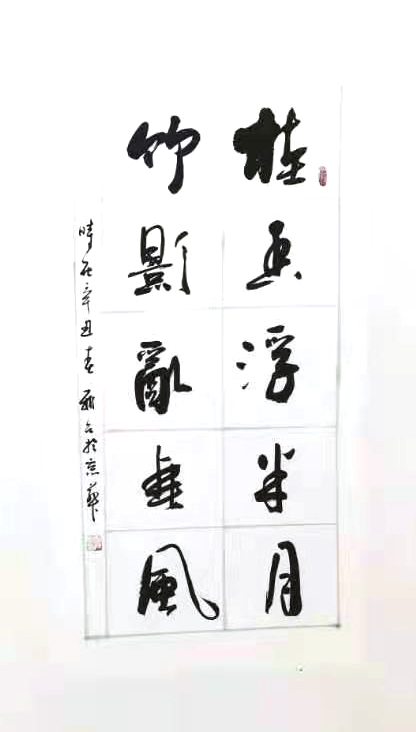 桂香浮半月
竹影亂無風
時在辛丑春於京華